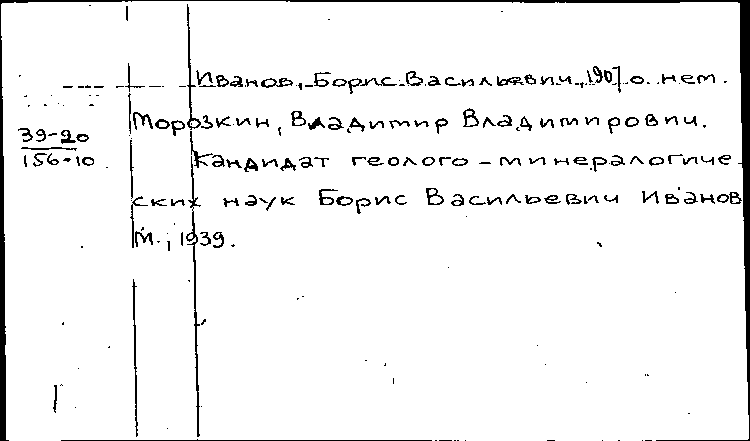 Иванов, Борис Васильевич, 1907 о нем.
Морозкин, Владимир Владимирович.
39-20
156-10
Кандидат геолого-минералогиче-
ских наук Борис Васильевич Иванов
М., 1939.